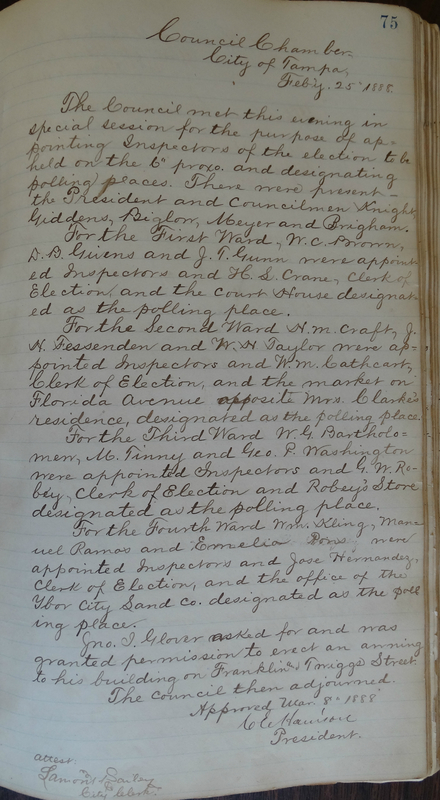 75
Council Chamber.
City of Tampa,
Feb'y. 25" 1888.
The Council met this evening in
special session for the purpose of ap=
pointing Inspectors of the election to be
held on the 6" proxo. and designating
polling places. There were present—
the President and Councilmen Knight,
Giddens, Biglow, Meyer and Brigham.
For the First Ward, W. C. Brown,
D. B. Givens and J. T. Gunn were appoint
ed Inspectors and H. L. Crane, Clerk of
Election, and the Court House designat=
ed as the polling place.
For the Second Ward H. M. Craft, J.
N. Fessenden and W. H Taylor were ap=
pointed Inspectors and W. M. Cathcart,
Clerk of Election, and the market on
Florida Avenue opposite Mrs. Clarke's
residence, designated as the polling place.
For the Third Ward W. G. Bartholo=
mew, M. Tinny and Geo. P. Washington
were appointed Inspectors and G. W. Ro=
bey, Clerk of Election and Robey's Store
designated as the polling place.
For the Fourth Ward Wm. Kling, Man=
uel Ramos and Emelia Pons, were
appointed Inspectors and Jose Hernandez,
Clerk of Election, and the office of the
Ybor City Sand Co. designated as the poll
ing place.
Jno. T. Glover asked for and was
granted permission to erect an awning
to his building on Franklin & Twiggs Street.
The Council then adjourned.
Approved Mar. 8" 1888
President.
attest.
City Clerk.